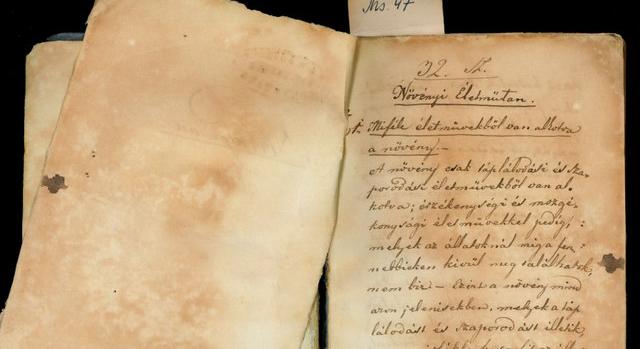 Ms. 47
32. Sz.
Növényi Életműtan.
Miféle életművekből van alkotva
a növény.—
A növény csak táplálodási és sza-
porodási életművekből van al-
kotva; észékenységi és mozgé-
konysági életművekkel pedig,
melyek az állatoknál még a fen-
nebbieken kivül meg találhatók,
nem bir — Ezért a növény mind
azon jelenésekben, melyek a táp
lálodást és szaporodást illetik,